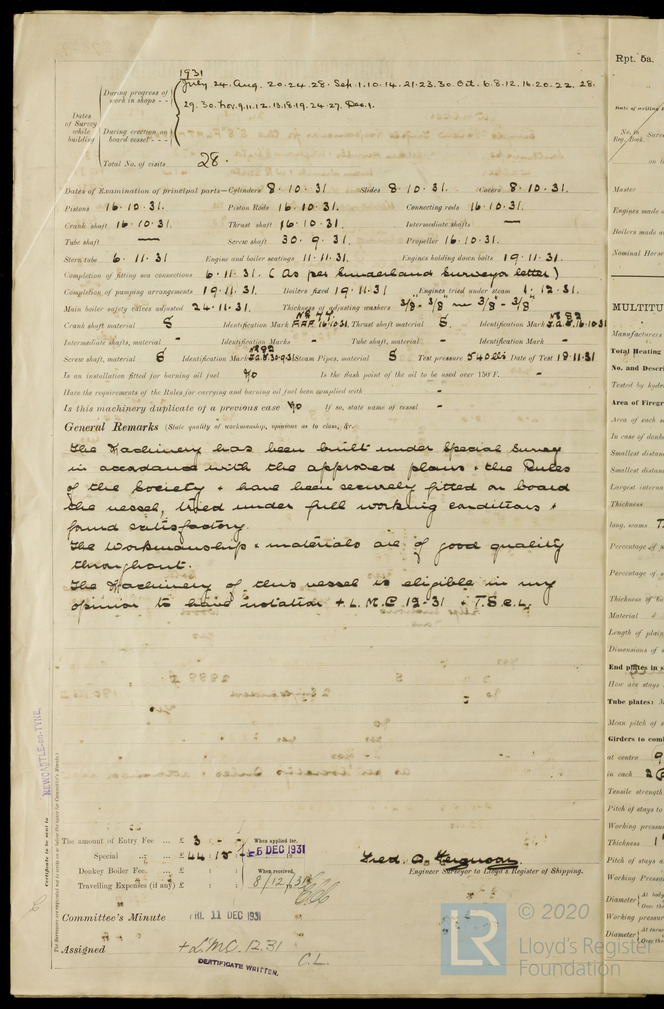 1931
During progress of work in shops - - July 24. Aug. 20.24.28. Sep. 1.10.14.21.23.30. Oct. 6.8.12.16.20.22.28.
29.30. Nov. 9.11.12.13.18.19.24.27. Dec. 1.
Dates of Survey while building
During erection on board vessel - - -
Total No. of visits 28.
Dates of Examination of principal parts—Cylinders 8.10.31. Slides 8.10.31. Covers 8.10.31.
Pistons 16.10.31. Piston Rods 16.10.31. Connecting rods 16.10.31.
Crank shaft 16.10.31. Thrust shaft 16.10.31. Intermediate shafts —
Tube shaft — Screw shaft 30.9.31. Propeller 16.10.31.
Stern tube 6.11.31 Engine and boiler seatings 11.11.31. Engines holding down bolts 19.11.31.
Completion of fitting sea connections 6.11.31. (As per Sunderland Surveyors letter)
Completion of pumping arrangements 19.11.31. Boilers fixed 19.11.31 Engines tried under steam 1.12.31.
Main boiler safety valves adjusted 24.11.31. Thickness of adjusting washers 3/8"- 3/8" 3/8"- 3/8"
Crank shaft material S Identification Mark 16.10.31. Thrust shaft material S. Identification Mark 16.10.31
Intermediate shafts, material - Identification Marks - Tube shaft, material - Identification Mark -
Screw shaft, material S Identification Mark 30.9.31 Steam Pipes, material S Test pressure 540 lbs Date of Test 18.11.31
Is an installation fitted for burning oil fuel No Is the flash point of the oil to be used over 150°F. -
Have the requirements of the Rules for carrying and burning oil fuel been complied with -
Is this machinery duplicate of a previous case No If so, state name of vessel -
General Remarks (State quality of workmanship, opinions as to class, &c.
The Machinery has been built under Special Survey
in accordance with the approved plans & the Rules
of the Society & have been securely fitted on board
the vessel, tried under full working conditions &
found satisfactory.
The Workmanship & materials are of good quality
throughout.
The Machinery of this vessel is eligible in my
opinion to have notation + L.M.C. 12-31 & T.S.C.L.
NEWCASTLE-on-TYNE
Certificate to be sent to
The amount of Entry Fee ... £ 3 : - : When applied for,
Special ... £ 44 : 15 : -5 DEC 1931
Donkey Boiler Fee. ... £ : : When received,
Travelling Expenses (if any) £ : : 8/12/31
Fred. A. Ferguson.
Engineer Surveyor to Lloyd's Register of Shipping.
Committee's Minute FRI. 11 DEC 1931
Assigned + L.M.C. 12.31
CERTIFICATE WRITTEN. C.L.
Rpt. 5a.
Date of writing
No. in Survey
Reg. Book.
on t
Master
Engines made a
Boilers made a
Nominal Horse
MULTITU
Manufacturers
Total Heating
No. and Descri
Tested by hydr
Area of Firegr
Area of each s
In case of donk
Smallest distan
Smallest distan
Largest interna
Thickness
long. seams
Percentage of s
Percentage of s
Thickness of b
Material
Length of plain
Dimensions of s
End plates in s
How are stays
Tube plates: M
Mean pitch of s
Girders to com
at centre
in each
Tensile strength
Pitch of stays to
Working pressur
Thickness
Pitch of stays a
Working Pressur
Diameter At body
Over thr
Working pressur
Diameter At turn
Over thr
LR © 2020
Lloyd's Register
Foundation